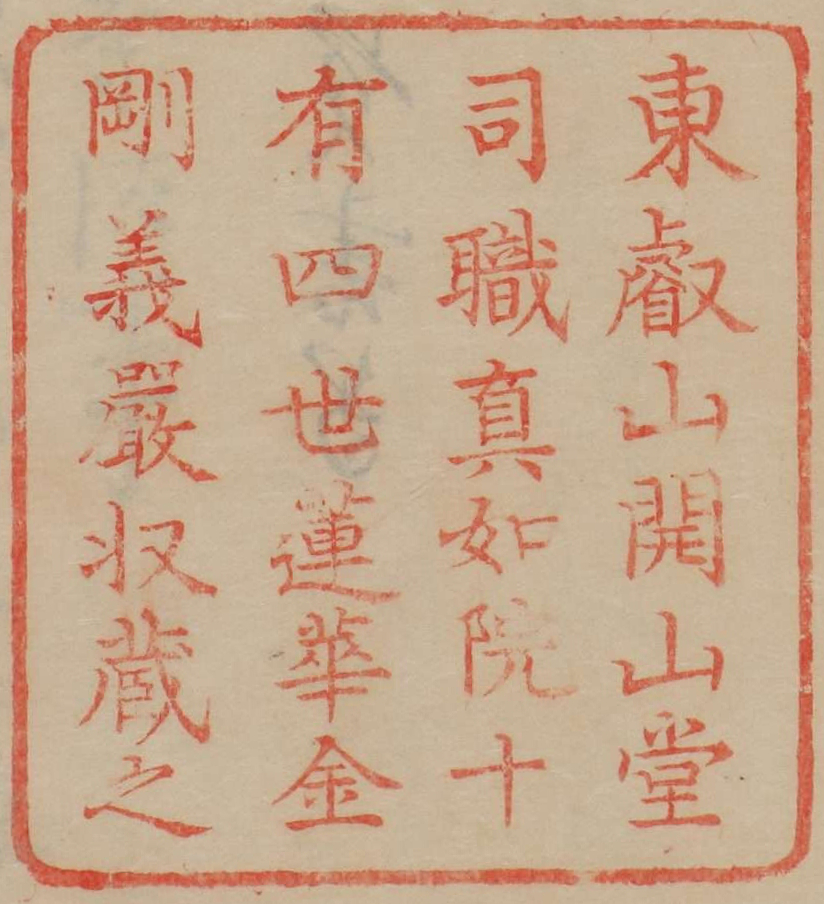 東叡山開山堂
司職真如院十
有四世蓮華金
剛義嚴収蔵之